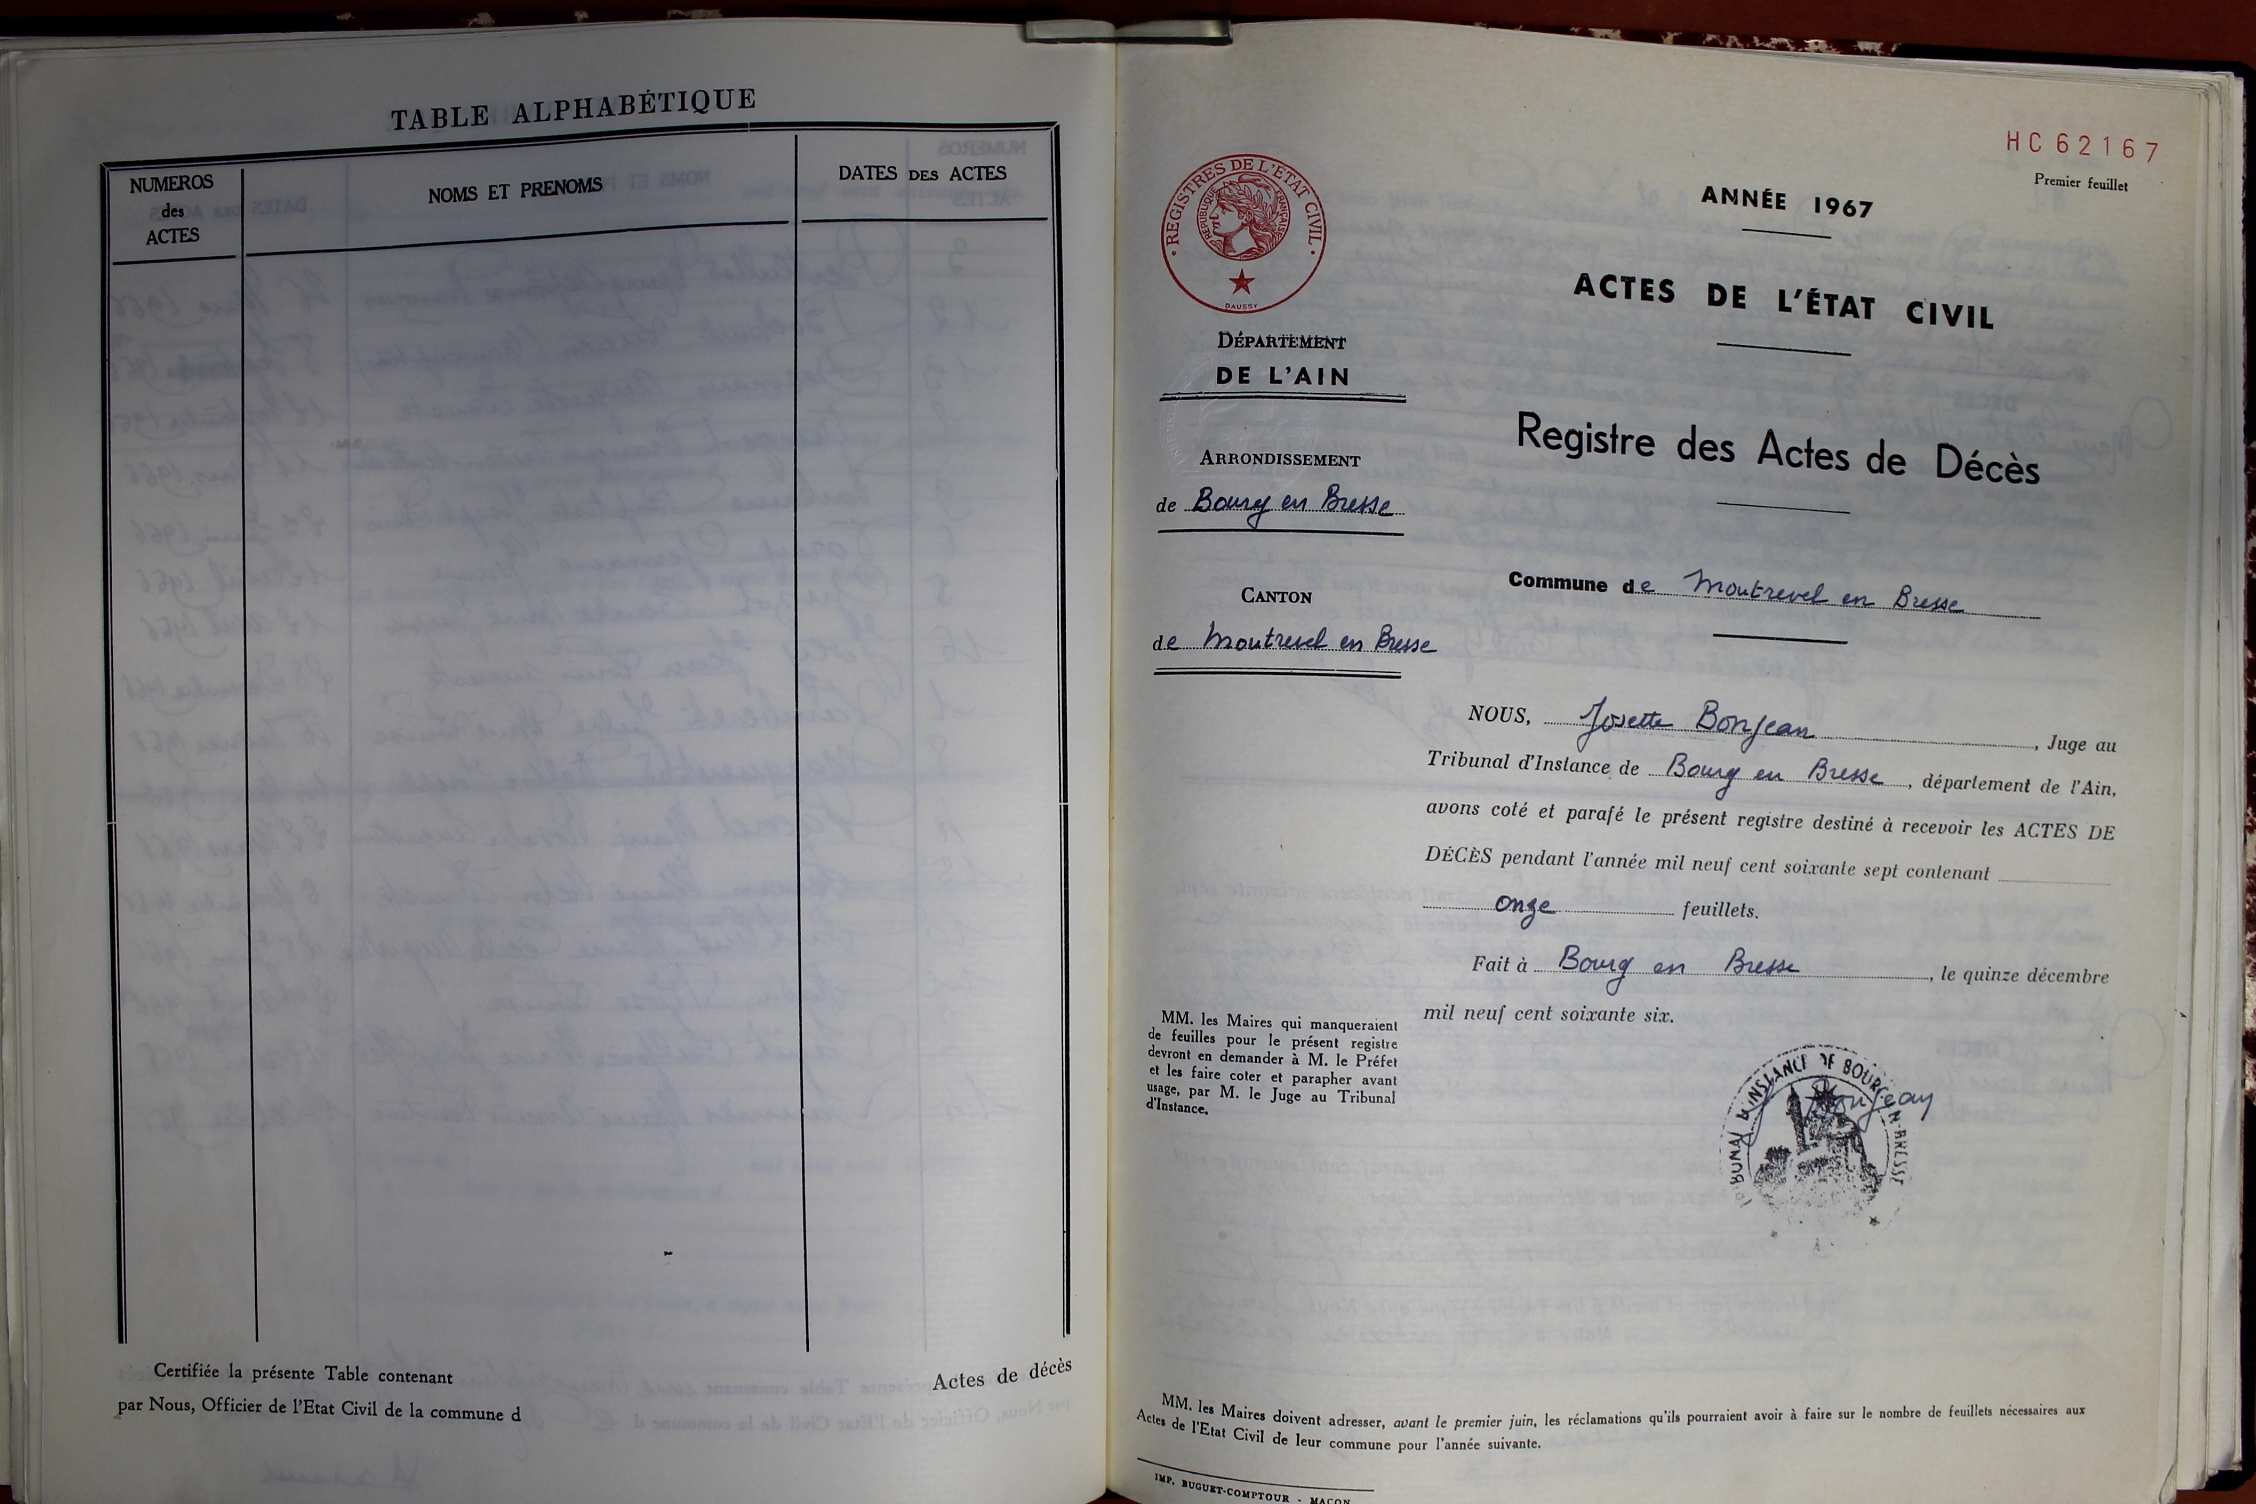 TABLE ALPHABÉTIQUE
NUMEROS
des
ACTES
NOMS ET PRENOMS
DATES DES ACTES
Certifiée la présente Table contenant
Actes de décès
par Nous, Officier de l'Etat Civil de la commune d
HC62167
Premier feuillet
REGISTRES DE L'ETAT CIVIL
REPUBLIQUE FRANÇAISE
DAUSSY
ANNÉE 1967
ACTES DE L'ÉTAT CIVIL
DÉPARTEMENT
DE L'AIN
Registre des Actes de Décès
ARRONDISSEMENT
de Bourg en Bresse
Commune de Montrevel en Bresse
CANTON
de Montrevel en Bresse
NOUS, Josette Bonjean, Juge au
Tribunal d'Instance de Bourg en Bresse, département de l'Ain,
avons coté et parafé le présent registre destiné à recevoir les ACTES DE
DÉCÈS pendant l'année mil neuf cent soixante sept contenant
onze feuillets.
Fait à Bourg en Bresse, le quinze décembre
mil neuf cent soixante six.
MM. les Maires qui manqueraient
de feuilles pour le présent registre
devront en demander à M. le Préfet
et les faire coter et parapher avant
usage, par M. le Juge au Tribunal
d'Instance.
TRIBUNAL D'INSTANCE DE BOURG EN BRESSE
Bonjean
MM. les Maires doivent adresser, avant le premier juin, les réclamations qu'ils pourraient avoir à faire sur le nombre de feuillets nécessaires aux
Actes de l'Etat Civil de leur commune pour l'année suivante.
IMP. BUGUET-COMPTOUR - MACON